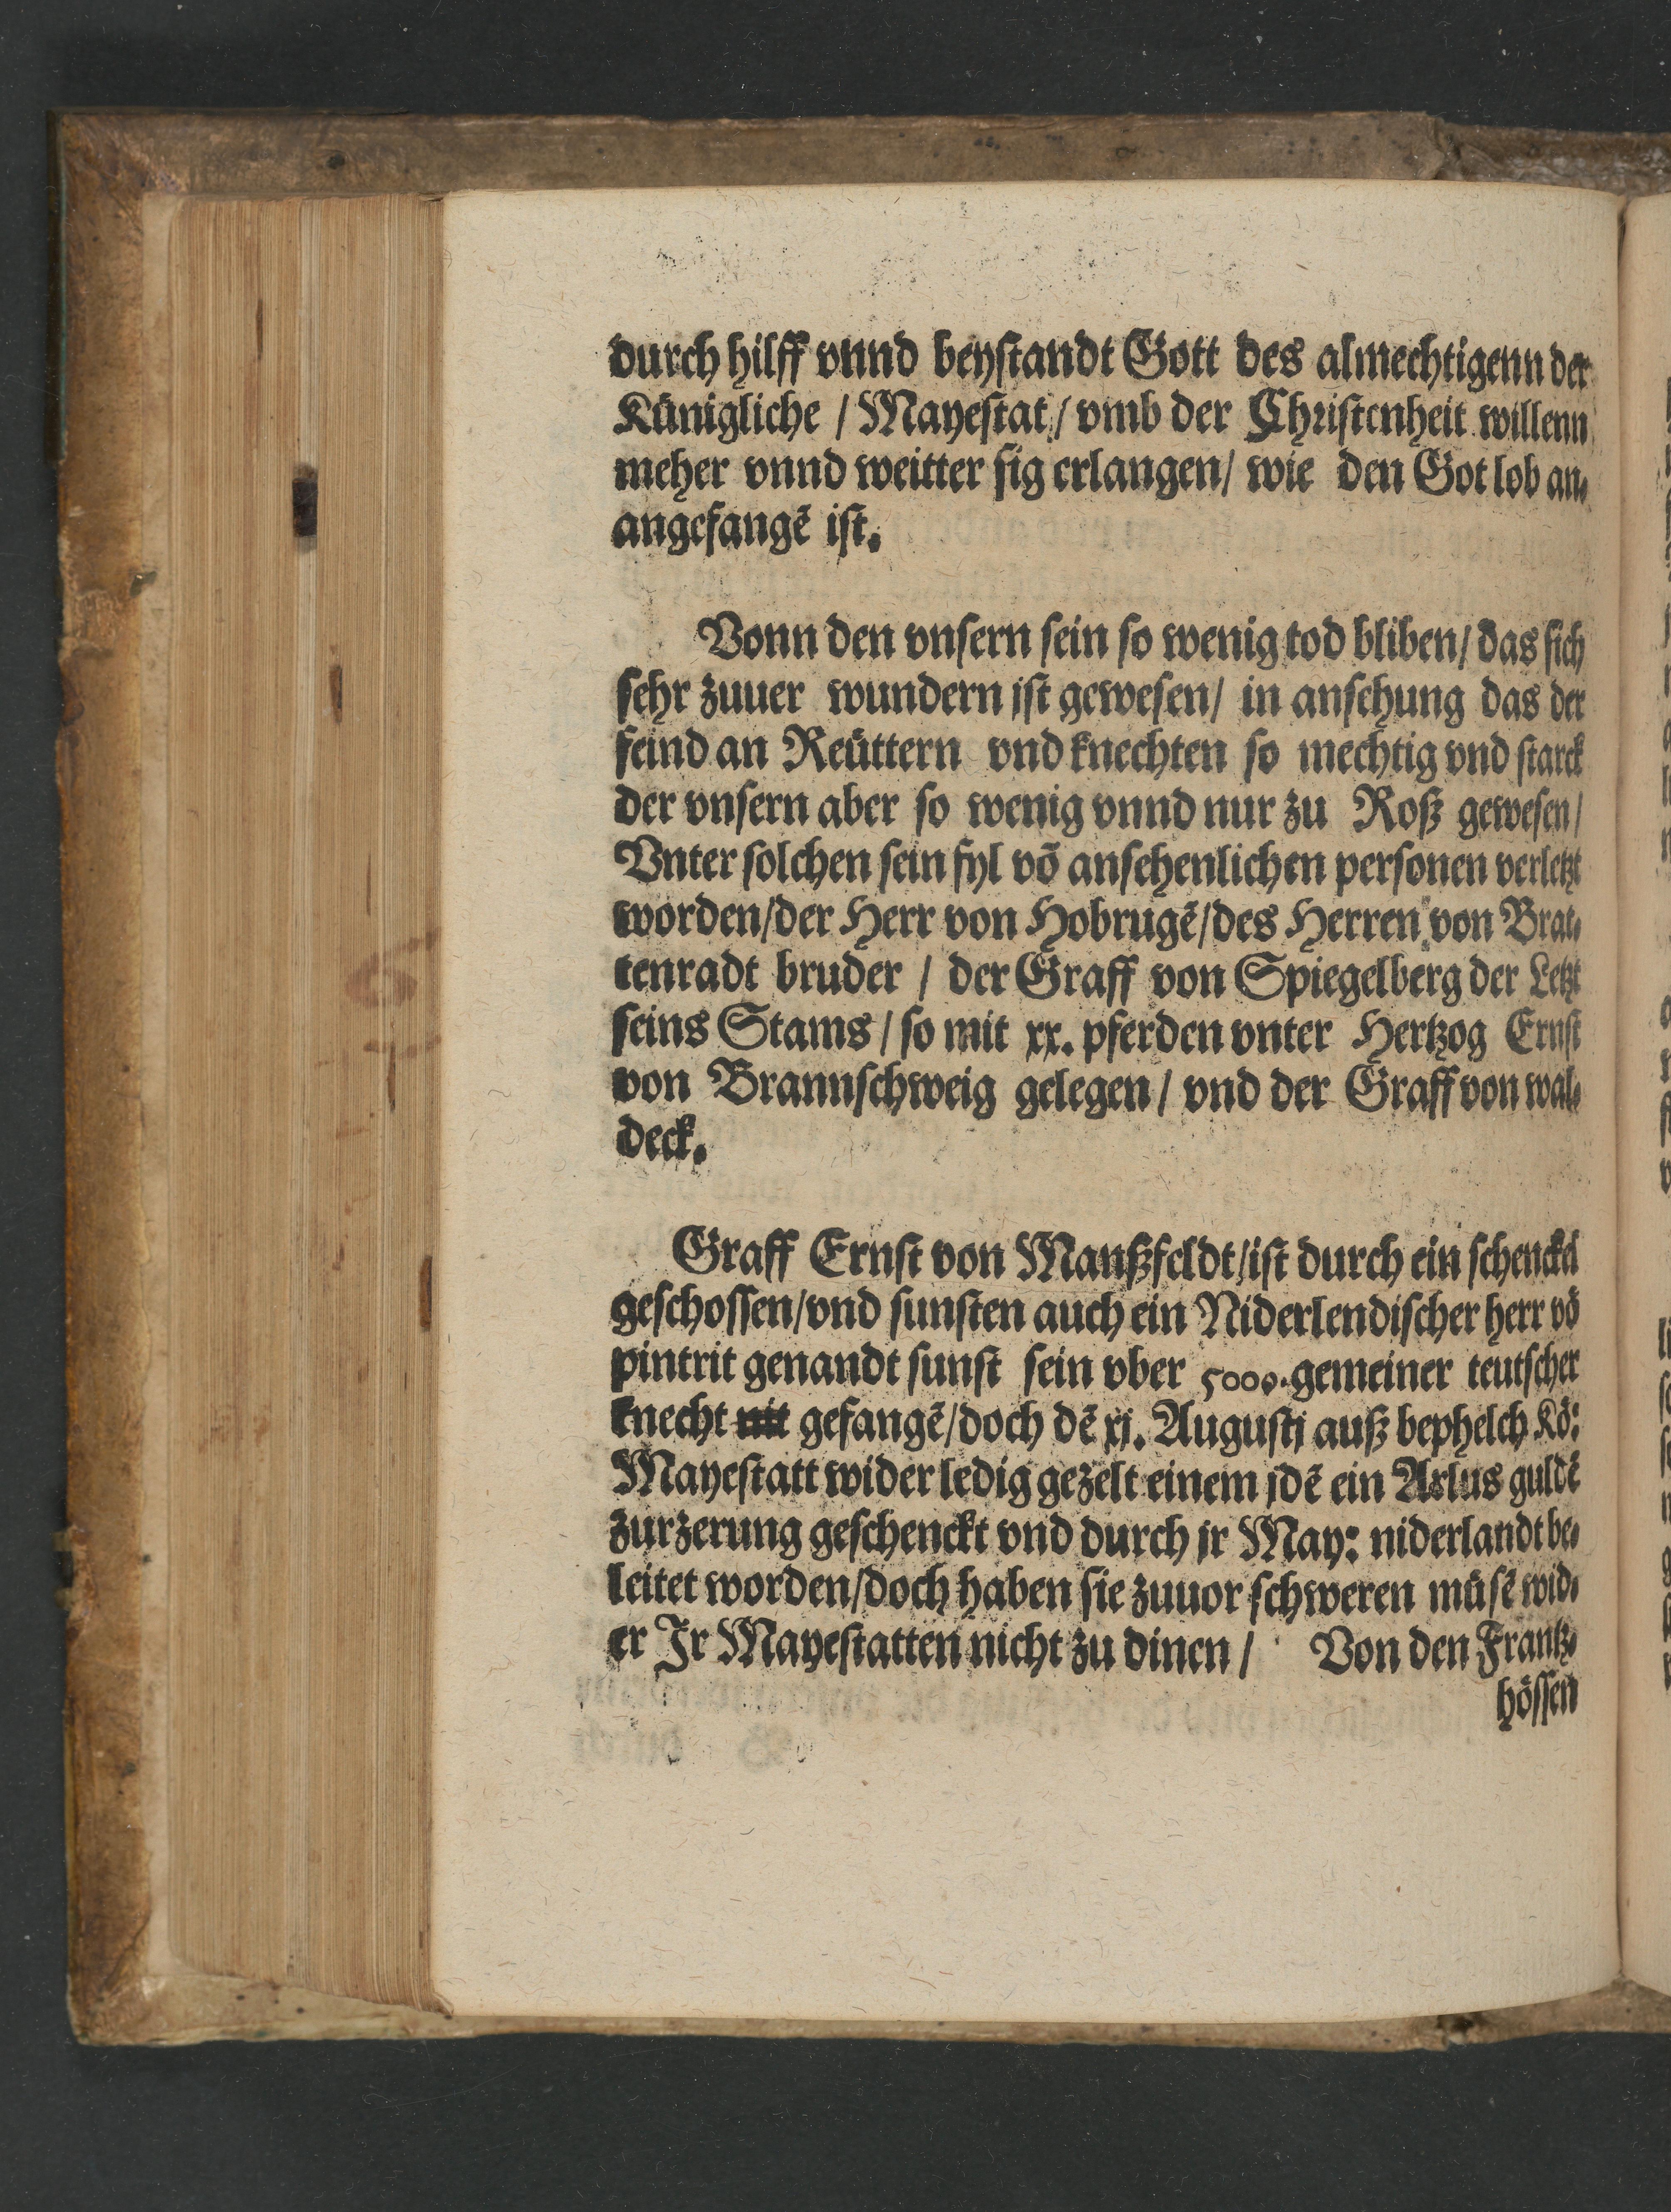 durch hilff vnnd beystandt Gott des almechtigenn der
Künigliche / Mayestat / vmb der Christenheit willenn
meher vnnd weitter sig erlangen / wie den Got lob an⸗
angefangē ist.
Vonn den vnsern sein so wenig tod bliben / das sich
sehr zuuer wundern ist gewesen / in ansehung das der
feind an Reüttern vnd knechten so mechtig vnd starck
der vnsern aber so wenig vnnd nur zu Roß gewesen /
Vnter solchen sein fyl vō ansehenlichen personen verletzt
worden / der Herr von Hobrugē / des Herren von Brat⸗
tenradt bruder / der Graff von Spiegelberg der Letzt
seins Stams / so mit xx. pferden vnter Hertzog Ernst
von Brannschweig gelegen / vnd der Graff von wal⸗
deck.
Graff Ernst von Manßfeldt / ist durch ein schenckel
geschossen / vnd sunsten auch ein Niderlendischer herr vō
pintrit genandt sunst sein vber 5000. gemeiner teutscher
knecht nit gefangē / doch dē xj. Augustj auß bephelch Kö:
Mayestatt wider ledig gezelt einem jdē ein Arlus guldē
zurzerung geschenckt vnd durch jr May: niderlandt be⸗
leitet worden / doch haben sie zuuor schweren müsē wid⸗
er Jr Mayestatten nicht zu dinen / Von den Frantz⸗
hössen